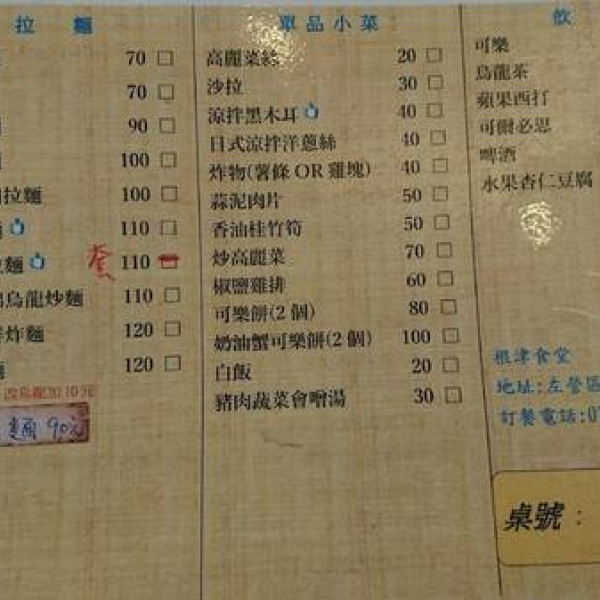 拉麵
70 □
70 □
90 □
100 □
拉麵 100 □
110 □
麵 110
套
烏龍炒麵 110 □
炸麵 120 □
120 □
改烏龍加10元
麵 90元
單品小菜
高麗菜絲 20 □
沙拉 30 □
涼拌黑木耳 40 □
日式涼拌洋蔥絲 40 □
炸物(薯條OR雞塊) 40 □
蒜泥肉片 50 □
香油桂竹筍 50 □
炒高麗菜 70 □
椒鹽雞排 60 □
可樂餅(2個) 80 □
奶油蟹可樂餅(2個) 100 □
白飯 20 □
豬肉蔬菜會噌湯 30 □
飲
可樂
烏龍茶
蘋果西打
可爾必思
啤酒
水果杏仁豆腐
根津食堂
地址:左營區
訂餐電話:0
桌號: